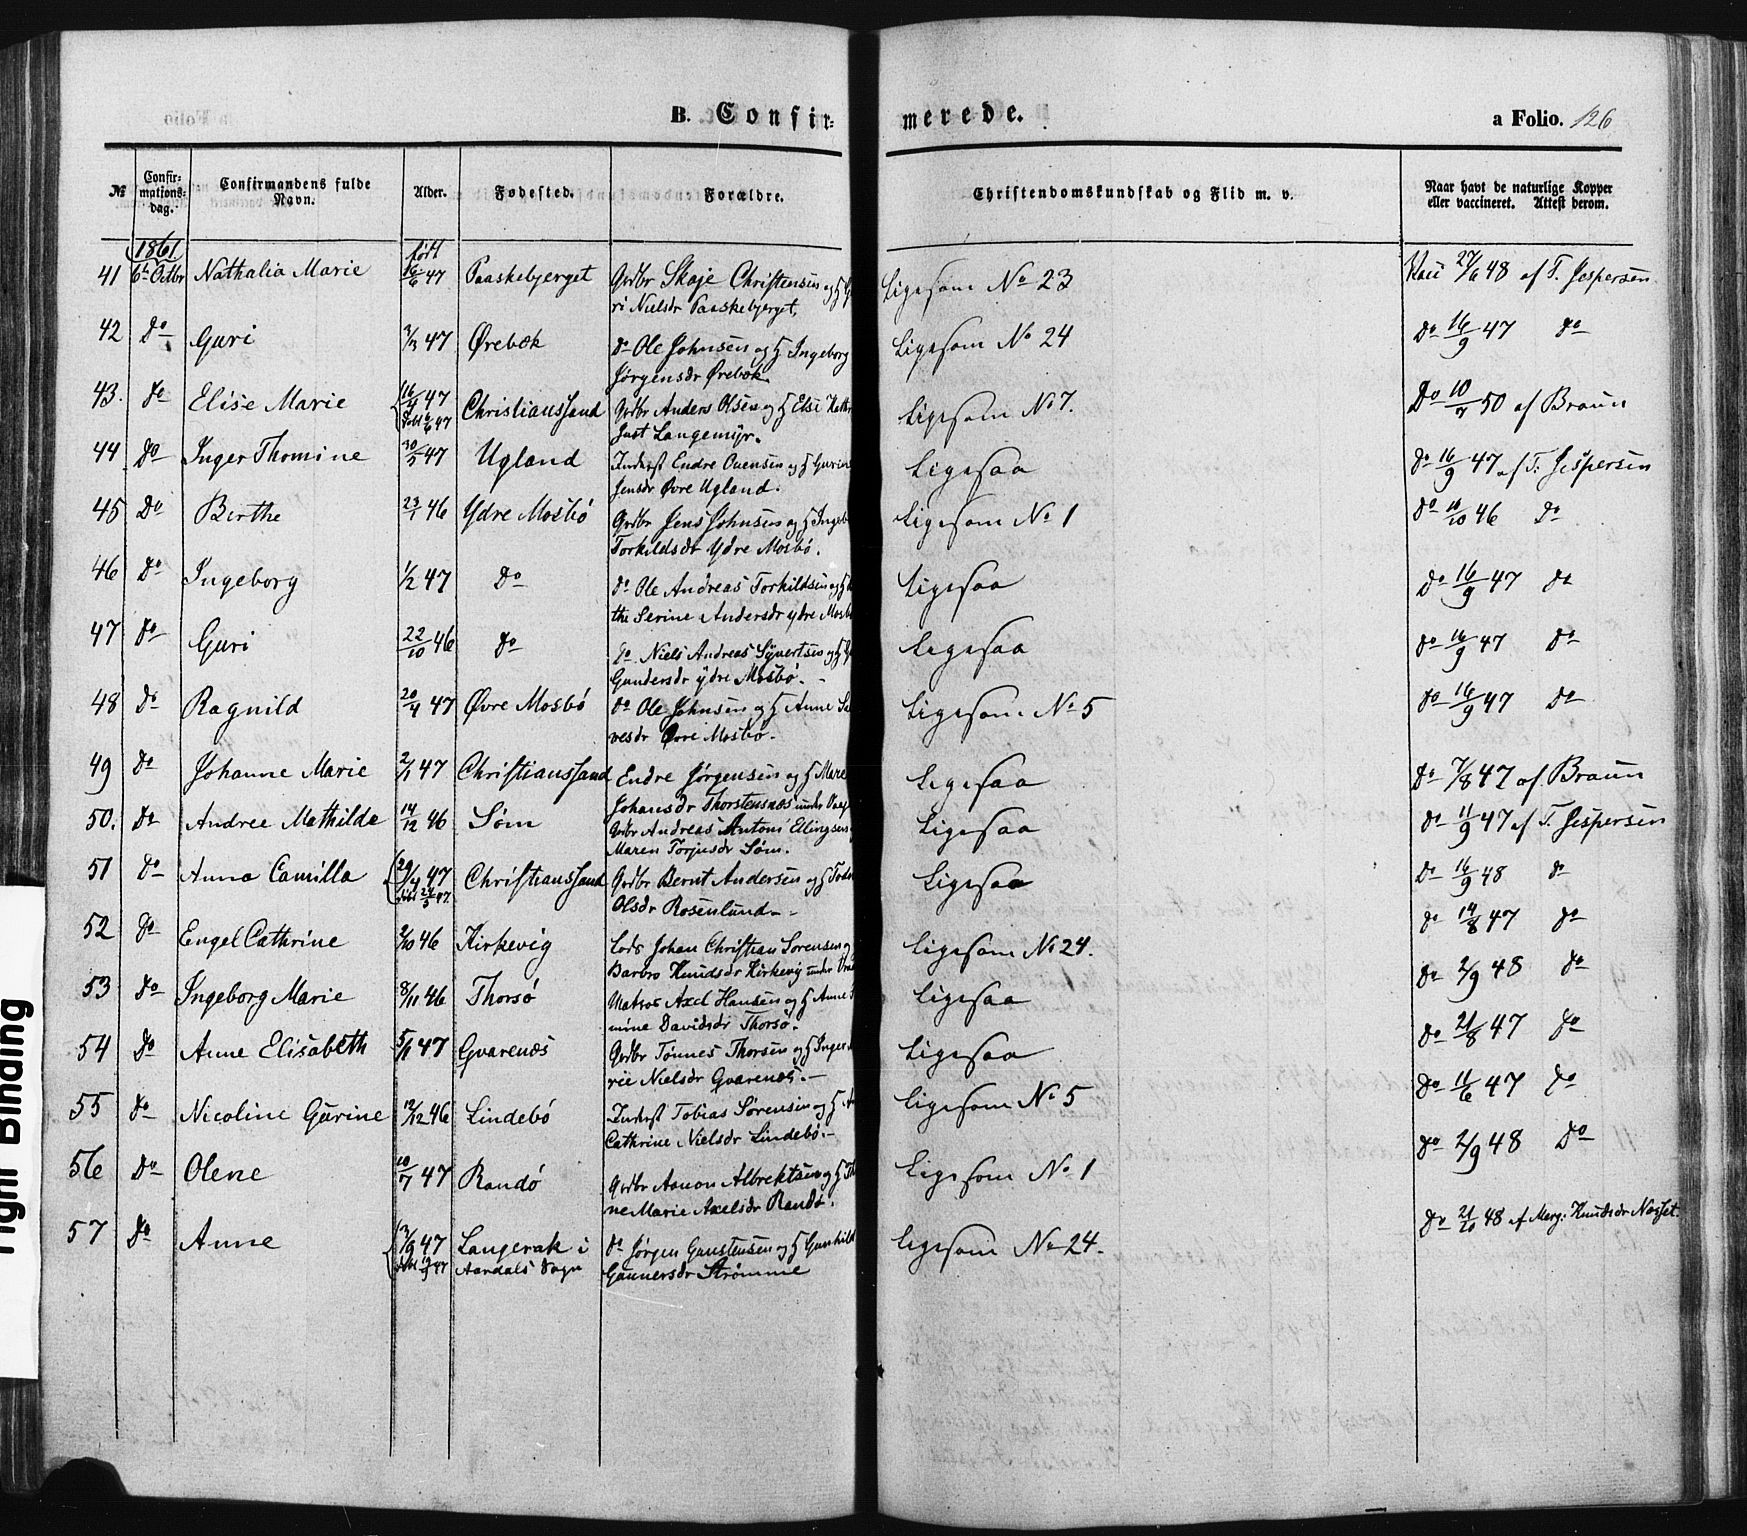 B. Confir-
merede.
a Folio. 126
№
Confir-
mations-
dag.
Confirmandens fulde
Navn.
Alder.
Fødested.
Forældre.
Christendomskundskab og Flid m. v.
Naar havt de naturlige Kopper
eller vaccineret. Attest derom.
1861
født
41 6te Octbr Nathalia Marie 16/6 47 Paaskebjerget Grdbr Skaje Christensen og H Gu Ligesom No 23 Vacc 27/6 48 af T. Jespersen
ri Nielsdr Paaskebjerget,
42 Do Guri 3/3 47 Ørebæk Do Ole Johnsen og H Ingeborg Ligesom No 24 Do 16/9 47 Do
Jørgensdr Ørebæk.
43. Do Elise Marie 16/4 47 Christianssand Grdbr Anders Olsen og H Else Ligesom No 7. Do 10/7 50 af Braun
døbt 6/6 47 Langemyr.
44 Do Inger Thomine 30/3 47 Ugland Inderst Endre Ouensen og H Gurine Ligesaa Do 16/9 47 af T. Jespersen
Jensdr Øvre Ugland.
45 Do Birthe 23/1 46 Ydre Mosbö Grdbr Jens Johnsen og H Ingeb Ligesom No 1 Do 10/10 46 Do
Torkildsdr Ydre Mosbö.
46 Do Ingeborg 1/2 47 Do Do Ole Andreas Torkildsen og H Ligesaa Do 16/9 47 Do
the Serine Andersdr ydre Mosb
47 Do Guri 22/10 46 Do Do Niels Andreas Syvertsen og H Ligesaa Do 16/9 47 Do
Gundersdr ydre Mosbö.
48 Do Ragnild 20/4 47 Øvre Mosbö Do Ole Johnsen og H Anne Sa Ligesom No 5 Do 16/9 47 Do
vesdr Øvre Mosbö.
49 Do Johanne Marie 2/1 47 Christianssand Endre Jørgensen og H Maren Ligesaa Do 7/8 47 af Braun
Johansdr Thorstensnæs under
50. Do Andree Mathilde 14/12 46 Søm Grdbr Andreas Antoni Ellingsen Ligesaa Do 11/9 47 af T. Jespersen
Maren Torjusdr Søm.
51 Do Anna Camilla 29/4 47 Christianssand Grdbr Bernt Andersen og H Ligesaa Do 16/9 48 Do
døbt 24/5 47. Olsdr Rosenlund.
52 Do Engel Cathrine 2/10 46 Kirkevig Lods Johan Christian Sørensen og Ligesom No 24. Do 14/8 47 Do
Barbro Knudsdr Kirkevig under
53 Do Ingeborg Marie 8/11 46 Thorsö Matros Axel Hansen og H Anne Ligesaa Do 2/9 48 Do
mine Davidsdr Thorsö.
54 Do Anne Elisabeth 5/1 47 Gvarenæs Grdbr Tønnes Thorsen og H Inger Ligesaa Do 21/8 47 Do
rie Nielsdr Gvarenæs.
55 Do Nicoline Gurine 12/12 46 Lindebö Inderst Tobias Sørensen og H Ligesom No 5 Do 11/6 47 Do
Cathrine Nielsdr Lindebö.
56 Do Olene 10/7 47 Randö Grdbr Aanon Albrektsen og H Th Ligesom No 1 Do 2/9 48 Do
ne Marie Axelsdr Randö.
57 Do Anne 3/9 47 Langerak i Do Jørgen Gunstensen og H Gunhild Ligesom No 24. Do 21/10 48 af Marg. Knudsdr Næset
døbt Aardals Sogn Gunnersdr Strømme
Tight Binding